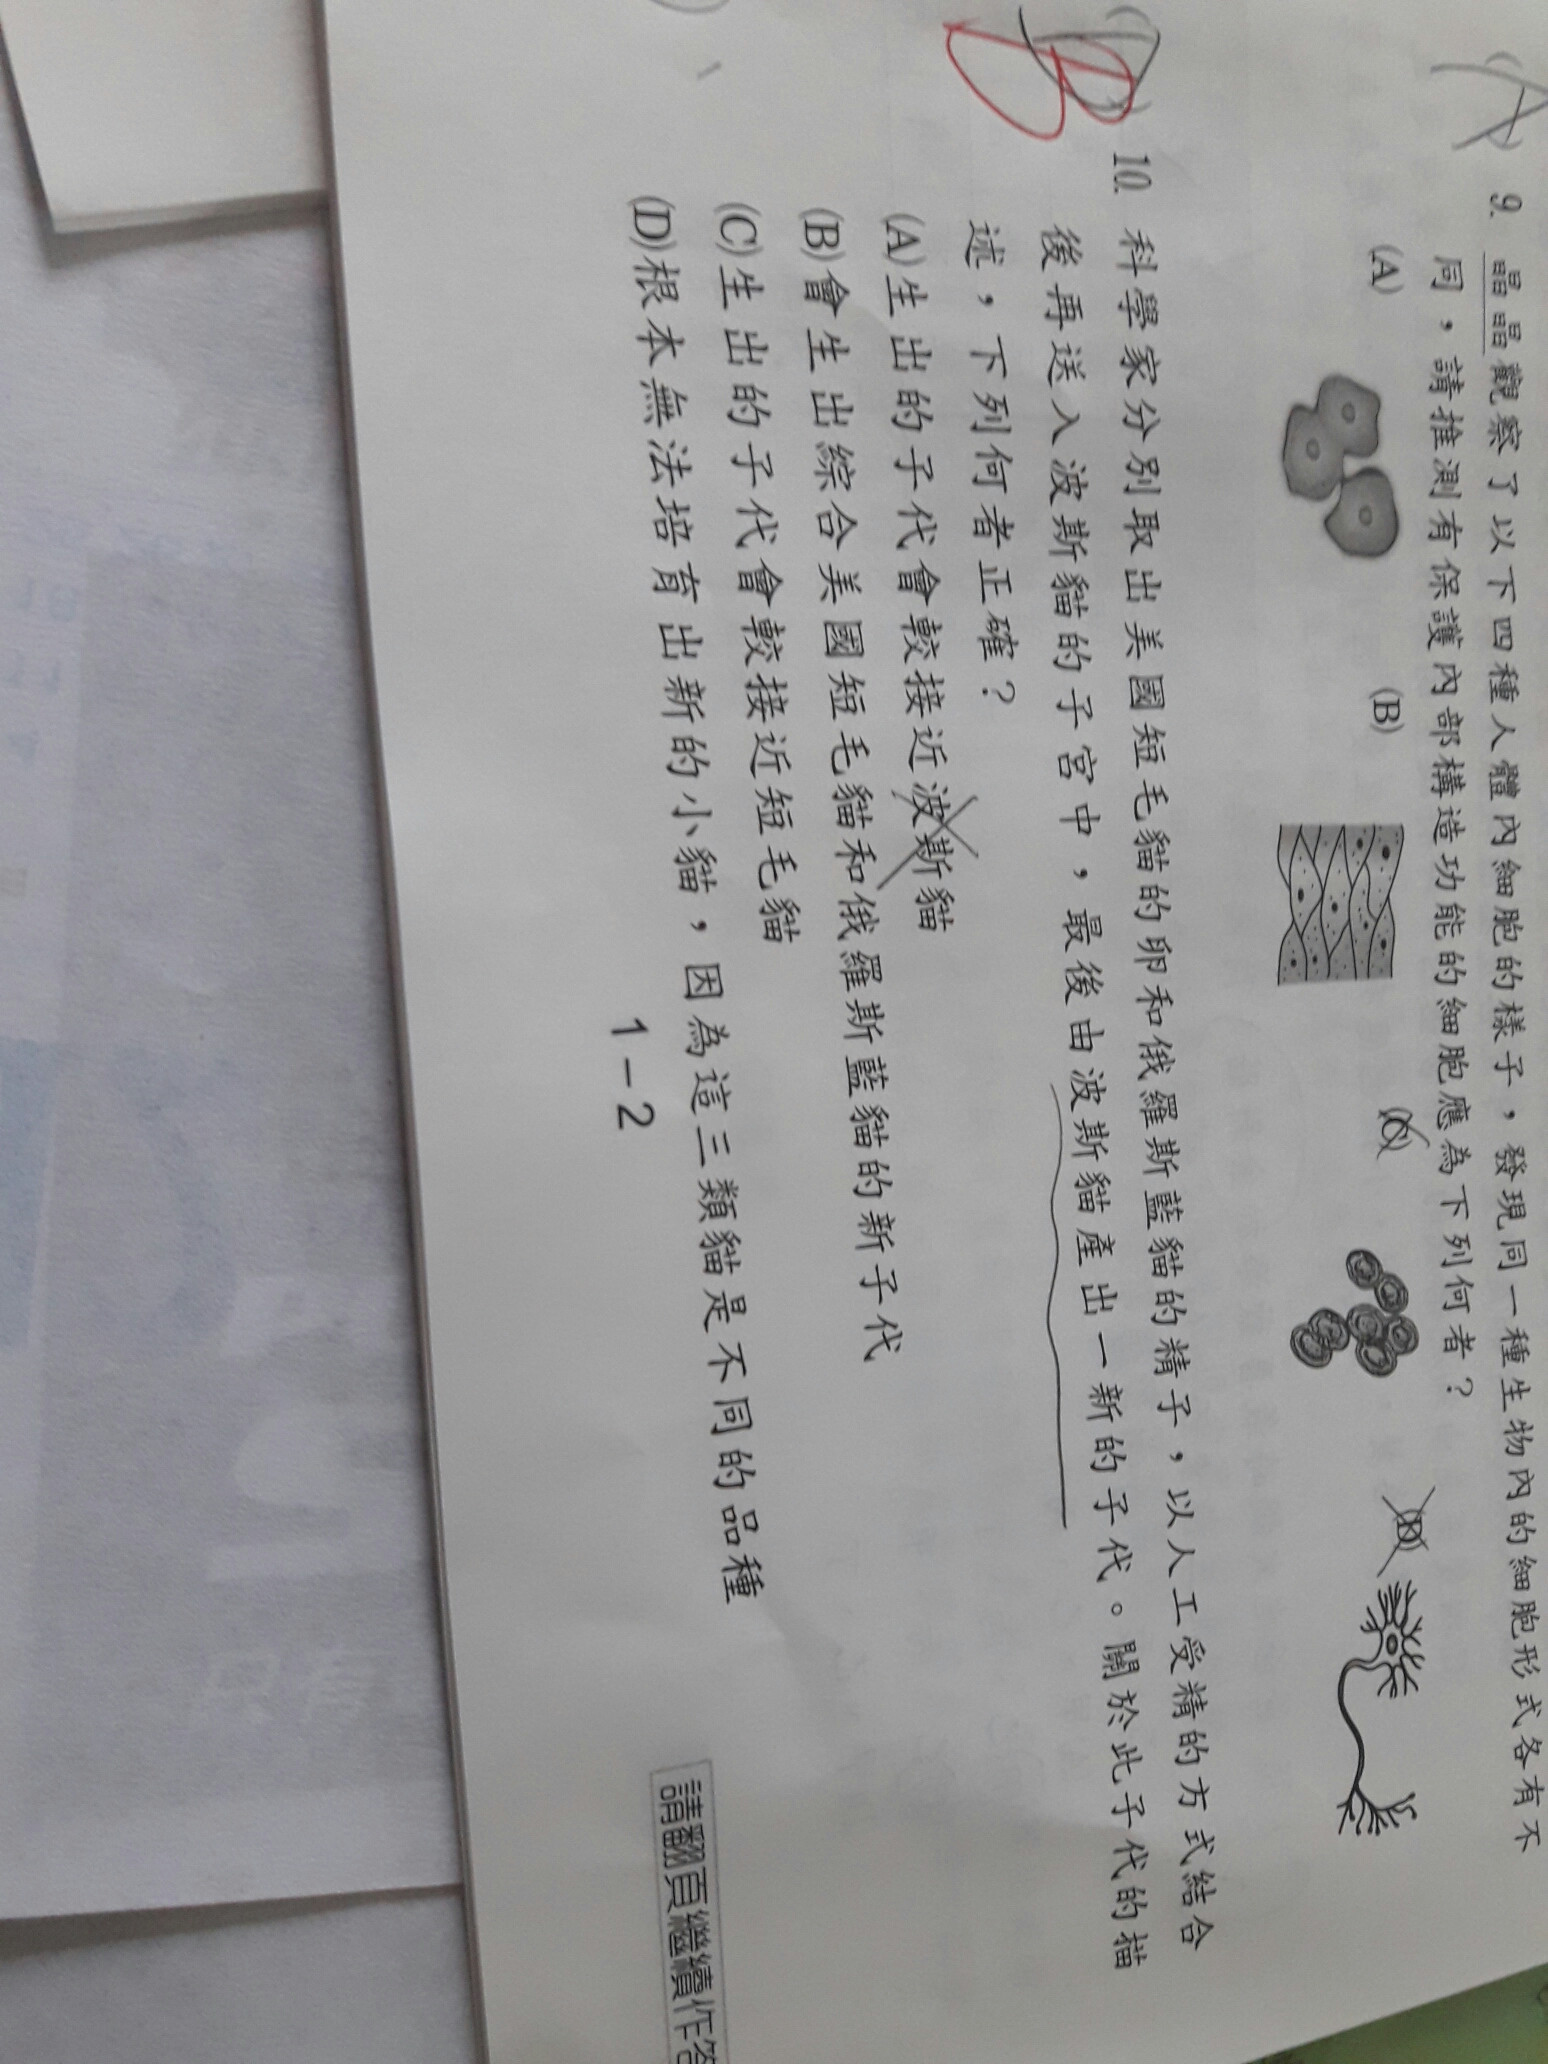 (A) 9. 晶晶觀察了以下四種人體內細胞的樣子，發現同一種生物內的細胞形式各有不
同，請推測有保護內部構造功能的細胞應為下列何者？
(A) (B) (C) (D)
(D) B 10. 科學家分別取出美國短毛貓的卵和俄羅斯藍貓的精子，以人工受精的方式結合
後再送入波斯貓的子宮中，最後由波斯貓產出一新的子代。關於此子代的描
述，下列何者正確？
(A)生出的子代會較接近波斯貓
(B)會生出綜合美國短毛貓和俄羅斯藍貓的新子代
(C)生出的子代會較接近短毛貓
(D)根本無法培育出新的小貓，因為這三類貓是不同的品種
1-2
請翻頁繼續作答